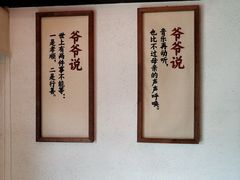 爷爷说
音乐再动听，
也比不过母亲的声声呼唤。
爷爷说
世上有两件事不能等：
一是孝顺，二是行善。